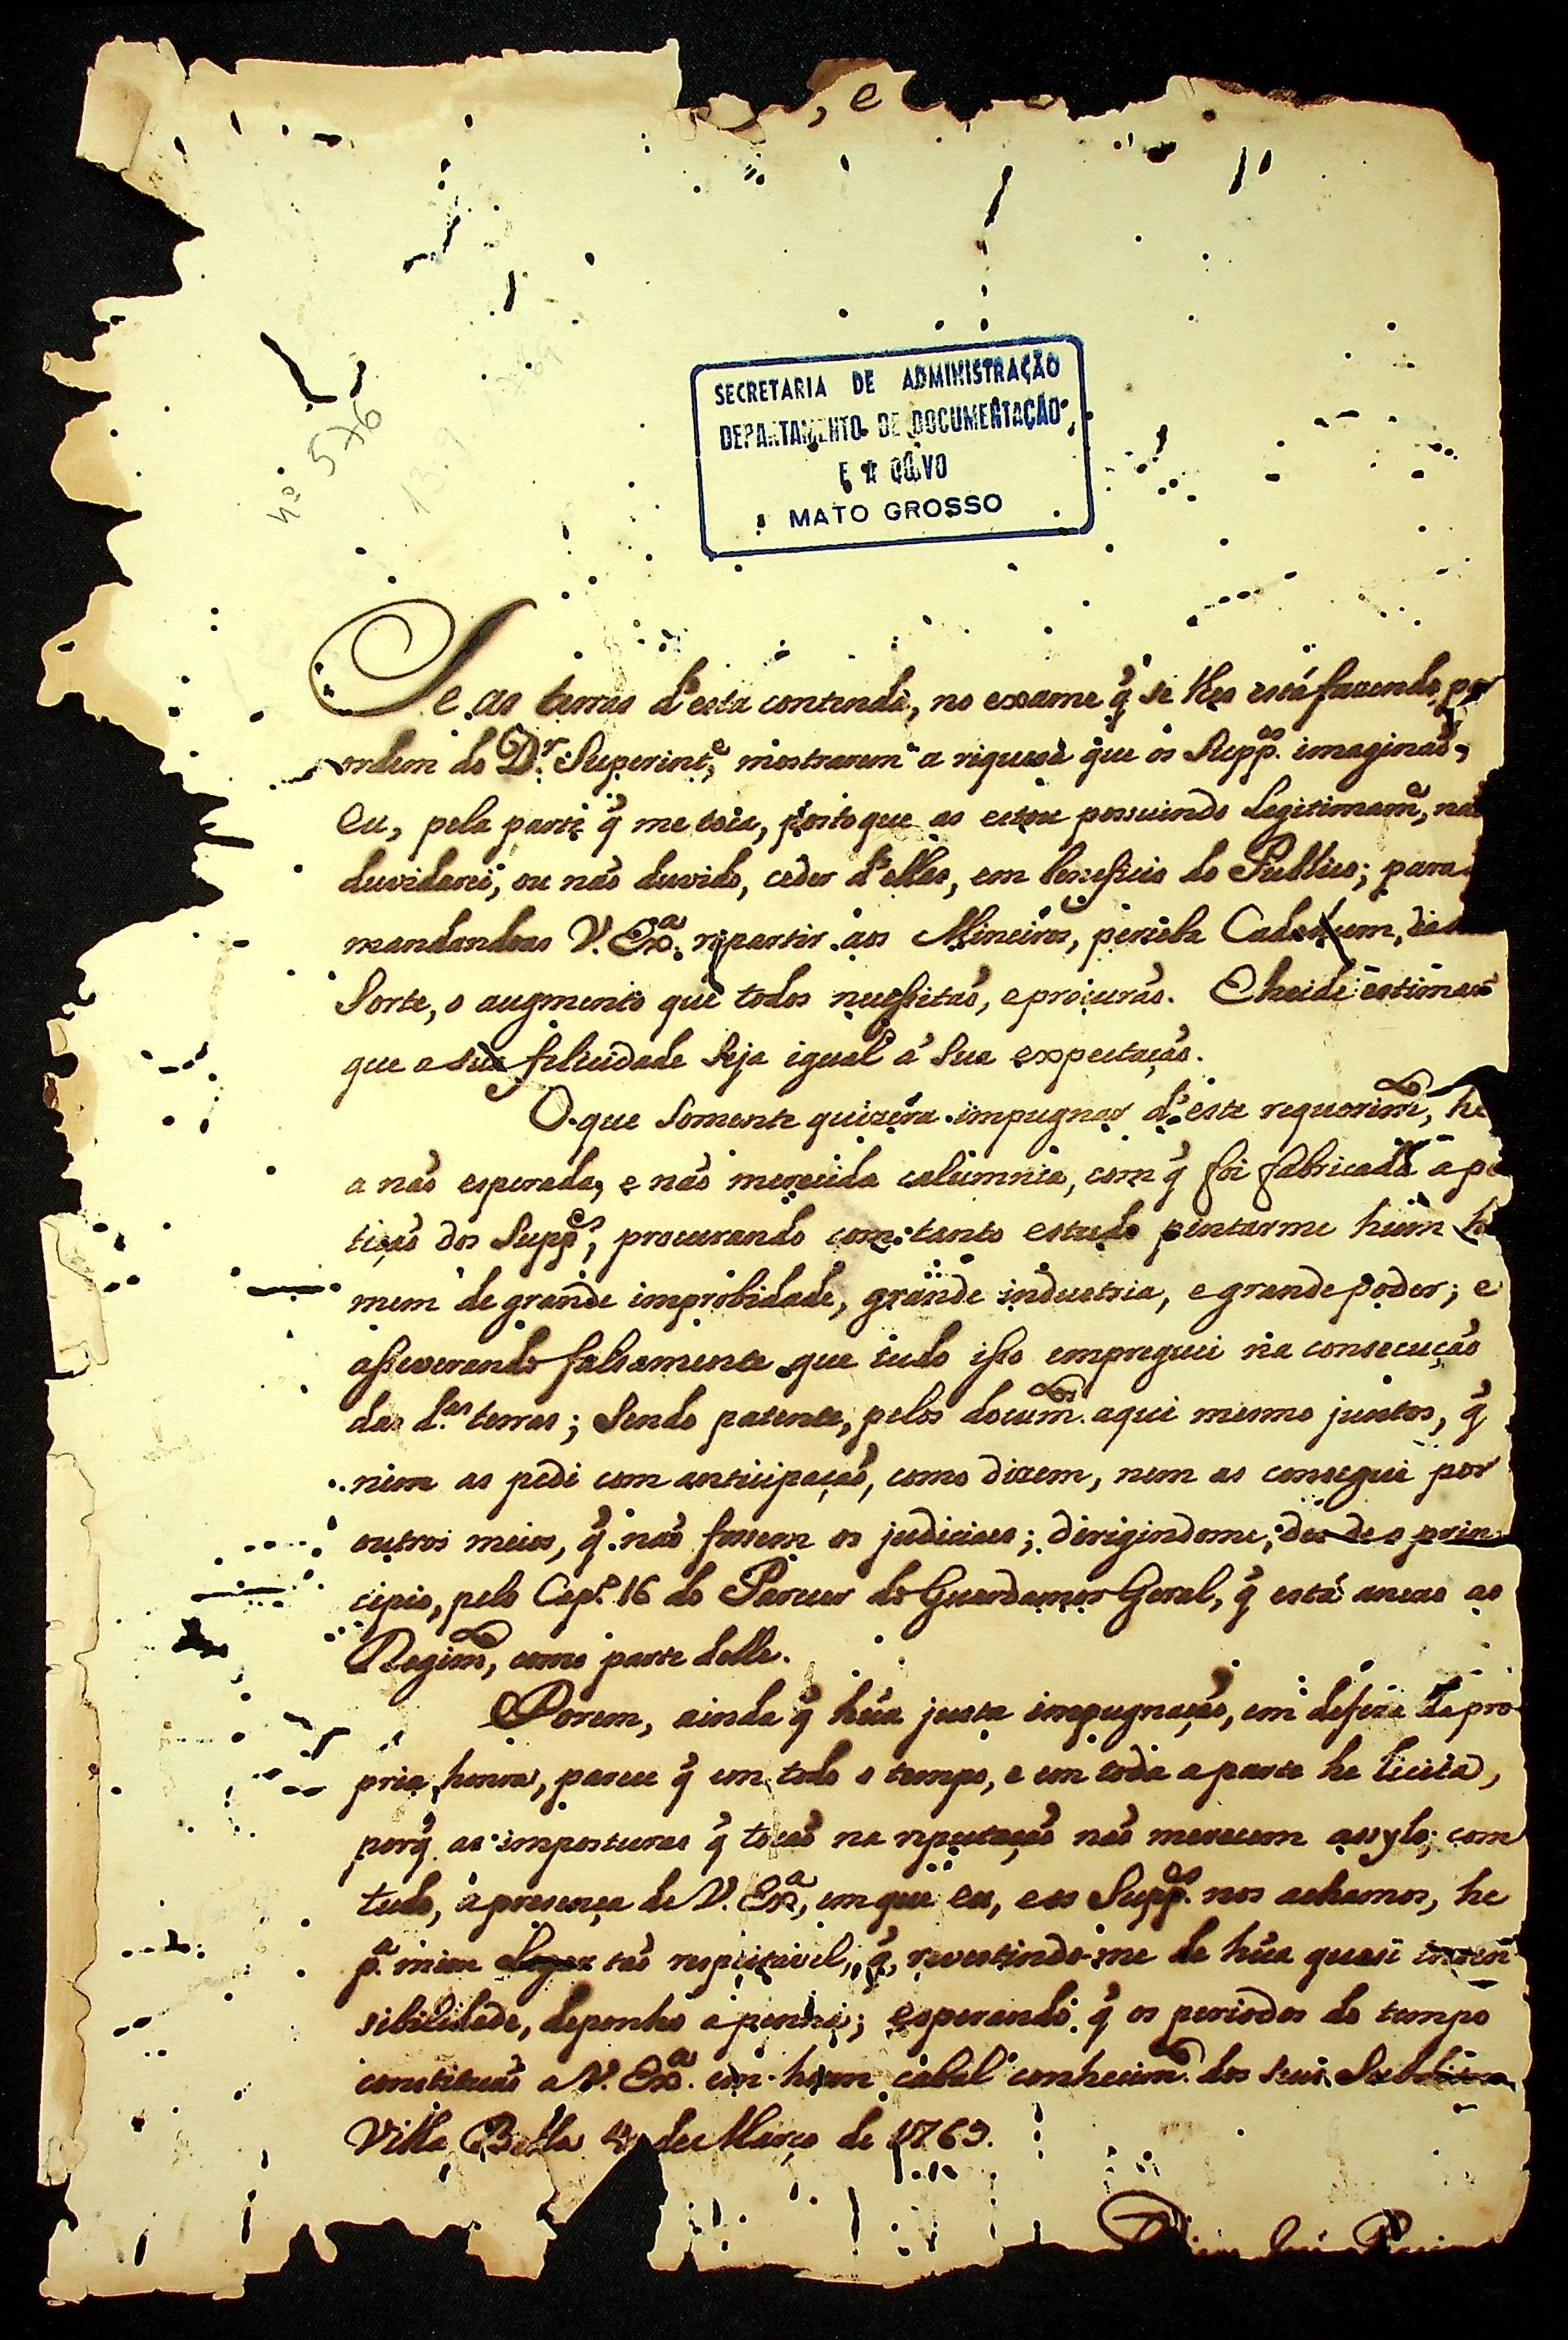 , e
nº 576
SECRETARIA DE ADMINISTRAÇÃO
DEPARTAMENTO DE DOCUMENTAÇÃO
E A QUIVO
MATO GROSSO
Se as terras d'esta contenda, no exame q̃ se lhes está fazendo, por
ordem do D.r Superint.e, mostrarem a riqueza que os Supp.es imaginaõ,
eu, pela parte q̃ me toca, postoque as estou possuindo legitimam.e, naõ
duvidarei, ou naõ duvido, ceder d'ellas, em beneficio do Publico; para
mandandoas V. Ex.a repartir aos Mineiros, perceba Cada hum,
Sorte, o augmento que todos necessitaõ, e procuraõ. E heide estimar
que a sua felicidade Seja igual á Sua expectaçaõ.
O que Somente quizéra impugnar d'este requerim.to, he
a naõ esperada, e naõ merecida calumnia, com q̃ foi fabricada a pe
tiçaõ dos Supp.es, procurando com tanto estudo pintarme hum ho
mem de grande improbidade, grande industria, e grande poder; e
asseverando falsamente que tudo isso empreguei na consecuçaõ
das d.as terras; Sendo patente, pelos docum.tos aqui mesmo juntos, q̃
nem as pedi com anticipaçaõ, como dizem, nem as consegui por
outros meios, q̃ naõ fossem os judiciaes; dirigindome, desde o prin
cipio, pelo Cap.o 16 do Parecer do Guardamor Geral, q̃ está anexo ao
Regim.to, como parte delle.
Porem, ainda q̃ hũa justa impugnaçaõ, em defeza da pro
pria honra, parece q̃ em todo o tempo, e em toda a parte he licita,
porq̃ as imposturas q̃ tocaõ na reputaçaõ naõ merecem asylo; com
tudo, a presença de V. Ex.a, em que eu, e os Supp.es nos achamos, he
p.a mim Lugar taõ respeitavel, q̃, revestindo-me de hũa quasi insen
sibilidade, deponho a penna; esperando q̃ os periodos do tempo
constituaõ a V. Ex.a em hum cabal conhecim.to dos seus Subditos.
Villa Bella 4 de Março de 1769.